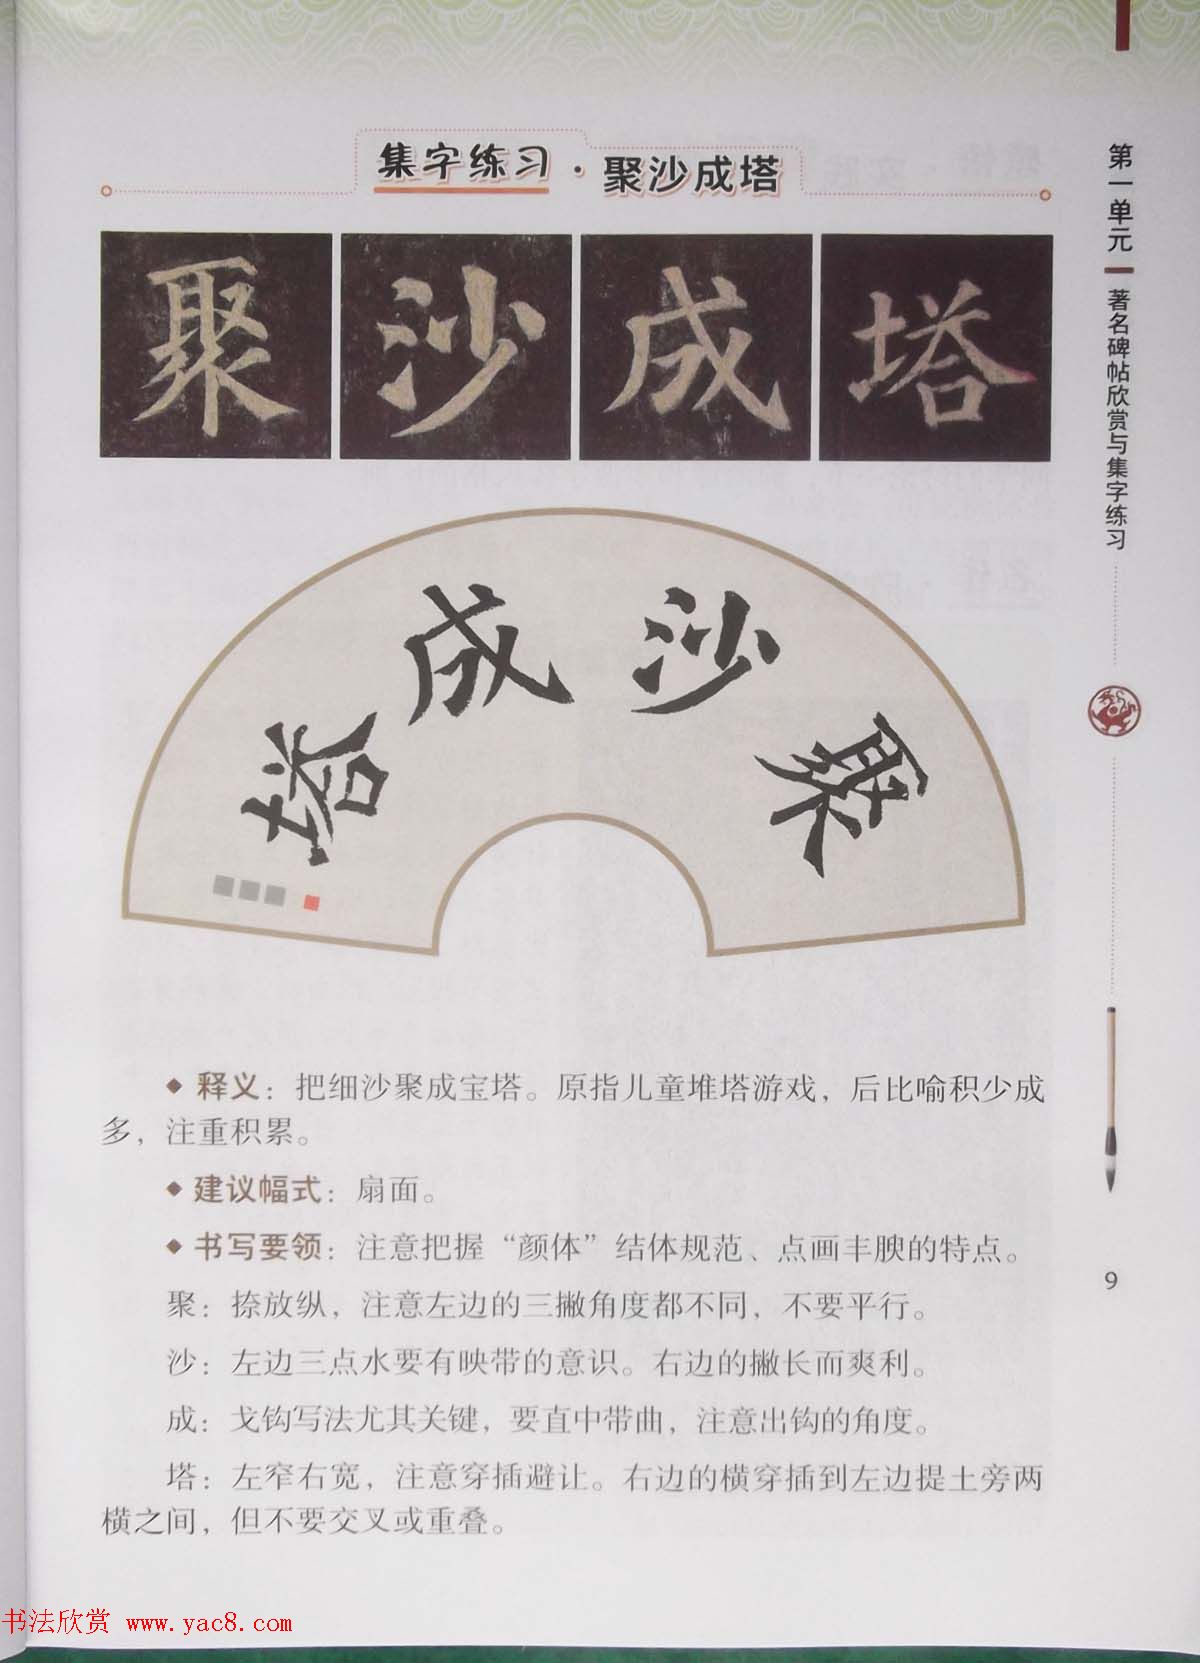 集字练习·聚沙成塔
聚 沙 成 塔
塔 成 沙 聚
◆ 释义：把细沙聚成宝塔。原指儿童堆塔游戏，后比喻积少成
多，注重积累。
◆ 建议幅式：扇面。
◆ 书写要领：注意把握“颜体”结体规范、点画丰腴的特点。
聚：捺放纵，注意左边的三撇角度都不同，不要平行。
沙：左边三点水要有映带的意识。右边的撇长而爽利。
成：戈钩写法尤其关键，要直中带曲，注意出钩的角度。
塔：左窄右宽，注意穿插避让。右边的横穿插到左边提土旁两
横之间，但不要交叉或重叠。
第一单元
著名碑帖欣赏与集字练习
9
书法欣赏 www.yac8.com